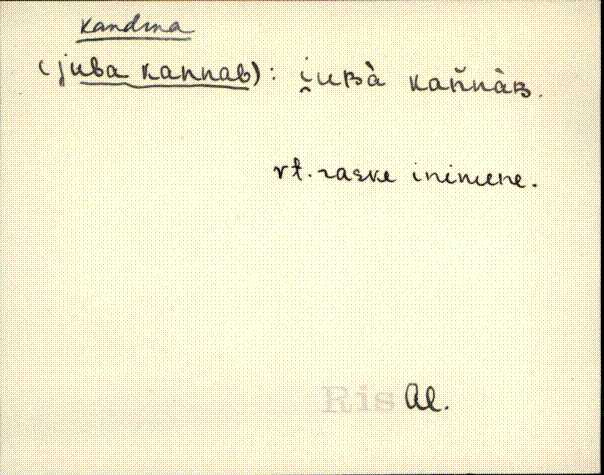 kandma
(juba kannab): i̯uʙà kan̆nàʙ.
vt. raske inimene.
Ris Al.